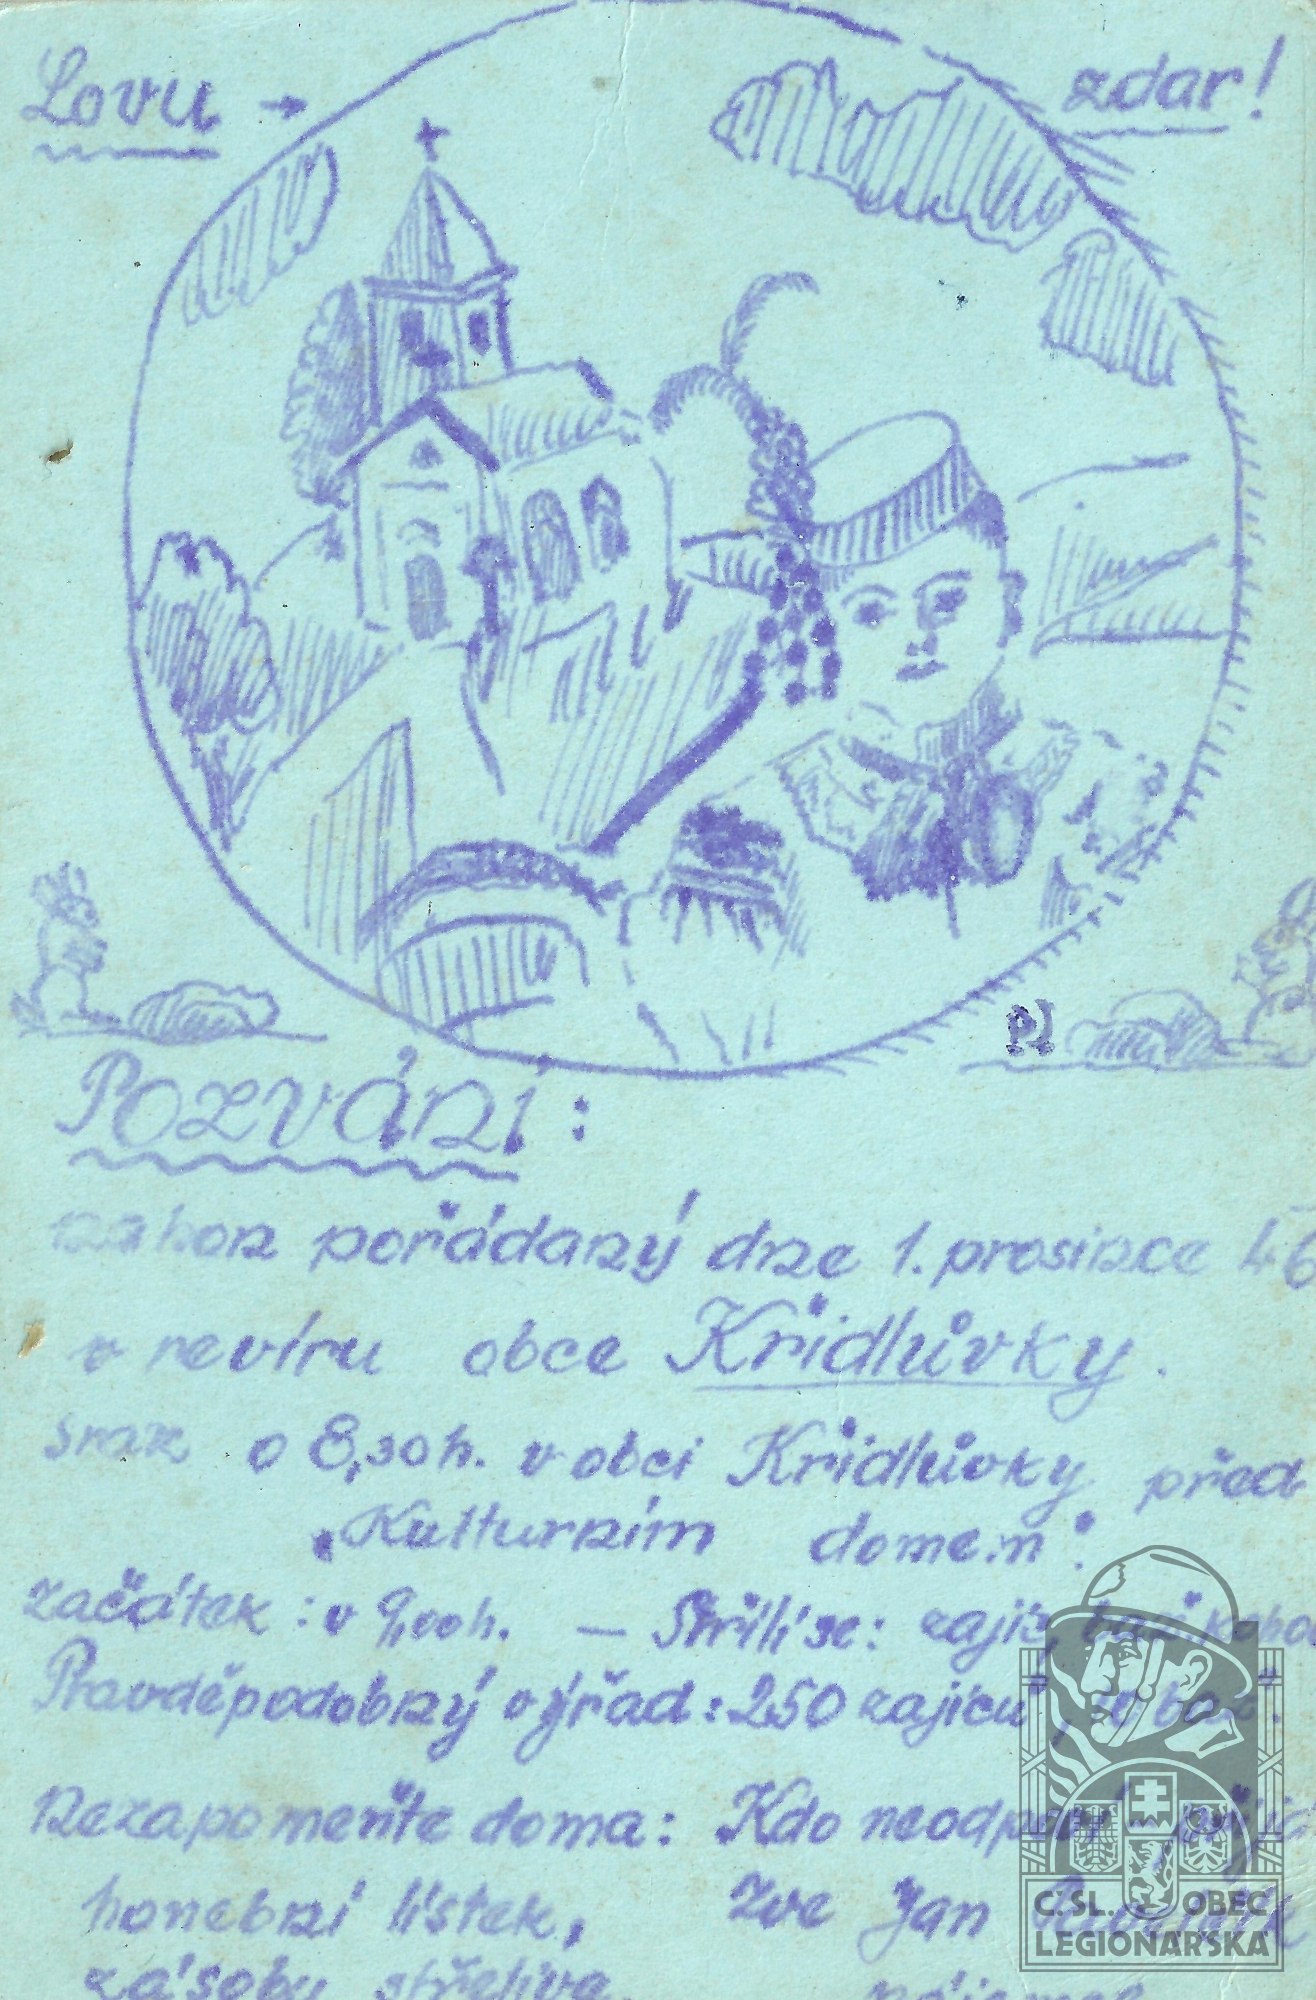 Lovu → zdar!
PJ
Pozvání:
na hon pořádaný dne 1. prosince 46
v revíru obce Křidlůvky.
sraz o 8,30 h. v obci Křidlůvky před
„Kulturním domem".
začátek: v 9,00 h. — Střílí se: zajíc,
Pravděpodobný výřad: 250 zajíců,
Nezapomeňte doma: Kdo
honební lístek, Zve Jan
zásobu střeliva
Č.SL. OBEC
LEGIONÁŘSKÁ